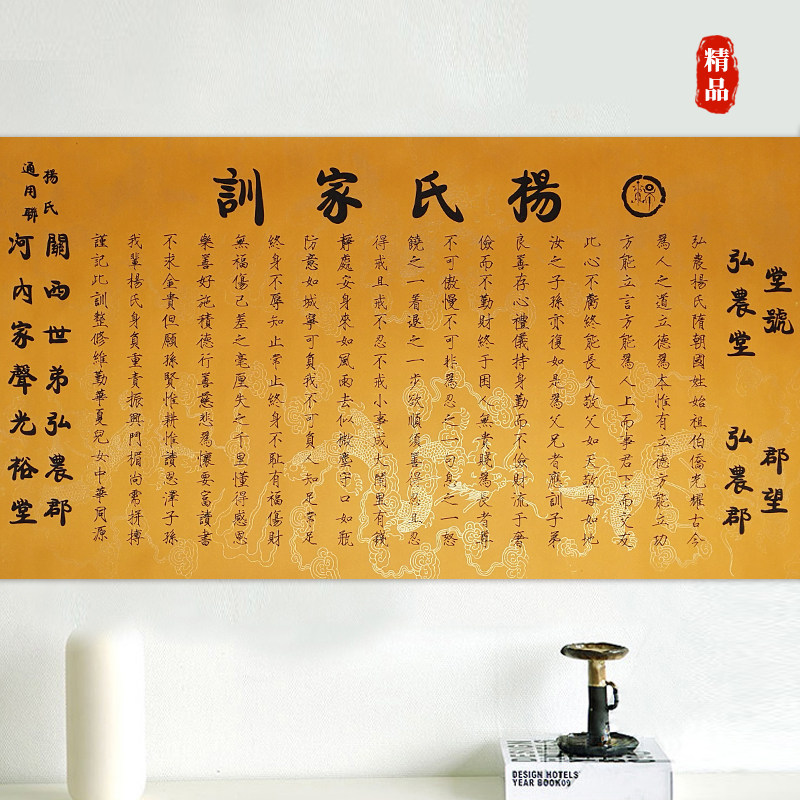 精品
楊氏家訓
堂號 弘農堂
郡望 弘農郡
弘農楊氏隋朝國姓始祖伯僑光耀古今
為人之道立德為本惟有立德方能立功
方能立言方能為人上而事君下而交友
此心不虧終能長久敬父如天敬母如地
汝之子孫亦復如是為父兄者應訓子弟
良善存心禮儀持身勤而不儉財流于奢
儉而不勤財終于困人無貴賤為長者尊
不可傲慢不可非為忍之一句身之一怒
饒之一着退之一步欲順須善得忍且忍
得戒且戒不忍不戒小事成大鬧里有錢
靜處安身來如風雨去似微塵守口如瓶
防意如城寧可負我不可負人知足常足
終身不辱知止常止終身不恥有福傷財
無福傷己差之毫厘失之千里懂得感恩
樂善好施積德行善慈悲為懷要富讀書
不求金貴但願孫賢惟耕惟讀恩澤子孫
我輩楊氏身負重責振興門楣尚需拼搏
謹記此訓整修維勤華夏兒女中華同源
楊氏通用聯
關西世弟弘農郡
河內家聲光裕堂
DESIGN HOTELS
YEAR BOOK09